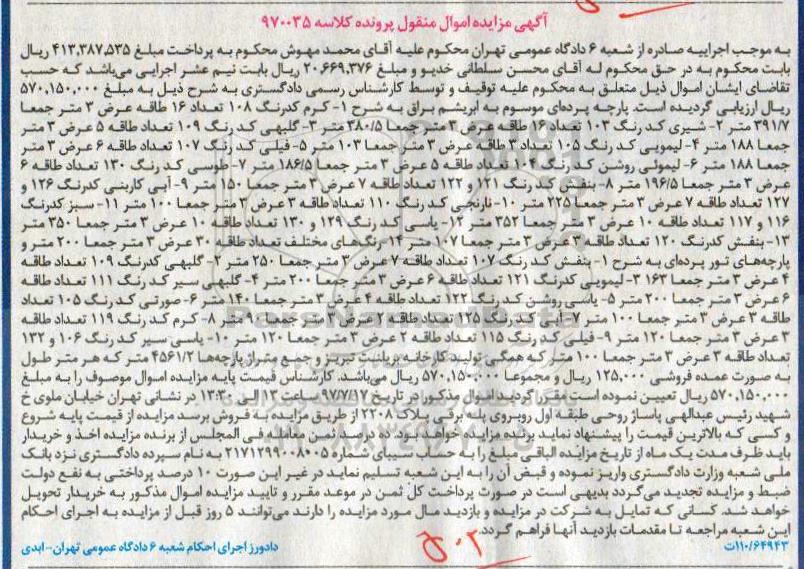 آگهی مزایده اموال منقول پرونده کلاسه ۹۷۰۰۳۵
به موجب اجراییه صادره از شعبه ۶ دادگاه عمومی تهران محکوم علیه آقای محمد مهوش محکوم به پرداخت مبلغ ۴۱۳,۳۸۷,۵۳۵ ریال
بابت محکوم به در حق محکوم له آقای محسن سلطانی خدیو و مبلغ ۲۰,۶۶۹,۳۷۶ ریال بابت نیم عشر اجرایی می‌باشد که حسب
تقاضای ایشان اموال ذیل متعلق به محکوم علیه توقیف و توسط کارشناس رسمی دادگستری به شرح ذیل به مبلغ ۵۷۰,۱۵۰,۰۰۰
ریال ارزیابی گردیده است. پارچه پرده‌ای موسوم به ابریشم براق به شرح ۱- کرم کدرنگ ۱۰۸ تعداد ۱۶ طاقه عرض ۳ متر جمعا
۳۹۱/۷ متر ۲- شیری کد رنگ ۱۰۳ تعداد ۱۶ طاقه عرض ۳ متر جمعا ۳۸۰/۵ متر ۳- گلبهی کد رنگ ۱۰۹ تعداد طاقه ۵ عرض ۳ متر
جمعا ۱۸۸ متر ۴- لیمویی کد رنگ ۱۰۵ تعداد ۳ طاقه عرض ۳ متر جمعا ۱۰۳ متر ۵- فیلی کد رنگ ۱۰۷ تعداد طاقه ۶ عرض ۳ متر
جمعا ۱۸۸ متر ۶- لیموئی روشن کد رنگ ۱۰۴ تعداد طاقه ۵ عرض ۳ متر جمعا ۱۸۶/۵ متر ۷- طوسی کد رنگ ۱۳۰ تعداد طاقه ۶
عرض ۳ متر جمعا ۱۹۶/۵ متر ۸- بنفش کد رنگ ۱۲۱ و ۱۲۲ تعداد طاقه ۷ عرض ۳ متر جمعا ۱۵۰ متر ۹- آبی کاربنی کدرنگ ۱۲۶ و
۱۲۷ تعداد طاقه ۷ عرض ۳ متر جمعا ۲۲۵ متر ۱۰- نارنجی کد رنگ ۱۱۰ تعداد طاقه ۳ عرض ۳ متر جمعا ۱۰۰ متر ۱۱- سبز کدرنگ
۱۱۶ و ۱۱۷ تعداد طاقه ۱۰ عرض ۳ متر جمعا ۳۵۲ متر ۱۲- یاسی کد رنگ ۱۲۹ و ۱۳۰ تعداد طاقه ۱۰ عرض ۳ متر جمعا ۳۵۰ متر
۱۳- بنفش کدرنگ ۱۲۰ تعداد طاقه ۳ عرض ۳ متر جمعا ۱۰۷ متر ۱۴- رنگ‌های مختلف تعداد طاقه ۳۰ عرض ۳ متر جمعا ۲۰۰ متر و
پارچه‌های تور پرده‌ای به شرح ۱- بنفش کد رنگ ۱۰۷ تعداد طاقه ۷ عرض ۳ متر جمعا ۲۵۰ متر ۲- گلبهی کدرنگ ۱۰۹ تعداد طاقه
۴ عرض ۳ متر جمعا ۱۶۳ ۳- لیمویی کدرنگ ۱۲۱ تعداد طاقه ۶ عرض ۳ متر جمعا ۲۰۰ متر ۴- گلبهی سیر کد رنگ ۱۱۱ تعداد طاقه
۶ عرض ۳ متر جمعا ۲۰۰ متر ۵- یاسی روشن کد رنگ ۱۲۲ تعداد طاقه ۴ عرض ۳ متر جمعا ۱۴۰ متر ۶- صورتی کد رنگ ۱۰۵ تعداد
طاقه ۳ عرض ۳ متر جمعا ۱۰۰ متر ۷- آبی کد رنگ ۱۲۵ تعداد طاقه ۲ عرض ۳ متر جمعا ۹۰ متر ۸- کرم کد رنگ ۱۱۹ تعداد طاقه
۳ عرض ۳ متر جمعا ۱۲۰ متر ۹- فیلی کد رنگ ۱۱۵ تعداد طاقه ۲ عرض ۳ متر جمعا ۱۲۰ متر ۱۰- یاسی سیر کد رنگ ۱۰۶ و ۱۳۲
تعداد طاقه ۳ عرض ۳ متر جمعا ۱۰۰ متر که همگی تولید کارخانه بریانیت تبریز و جمع متراژ پارچه‌ها ۴۵۶۱/۲ متر که هر متر طول
به صورت عمده فروشی ۱۲۵,۰۰۰ ریال و مجموعا ۵۷۰,۱۵۰,۰۰۰ ریال می‌باشد. کارشناس قیمت پایه مزایده اموال موصوف را به مبلغ
۵۷۰,۱۵۰,۰۰۰ ریال تعیین نموده است مقرر گردید اموال مذکور در تاریخ ۹۷/۷/۱۷ ساعت ۱۳ الی ۱۳:۳۰ در نشانی تهران خیابان ملوی خ
شهید رئیس عبدالهی پاساژ روحی طبقه اول روبروی پله برقی پلاک ۲۲۰۸ از طریق مزایده به فروش برسد مزایده از قیمت پایه شروع
و کسی که بالاترین قیمت را پیشنهاد نماید برنده مزایده خواهد بود. ده درصد ثمن معامله فی المجلس از برنده مزایده اخذ و خریدار
باید ظرف مدت یک ماه از تاریخ مزایده الباقی مبلغ را به حساب سیبای شماره ۲۱۷۱۲۹۹۰۰۸۰۰۵ به نام سپرده دادگستری نزد بانک
ملی شعبه وزارت دادگستری واریز نموده و قبض آن را به این شعبه تسلیم نماید در غیر این صورت ۱۰ درصد پرداختی به نفع دولت
ضبط و مزایده تجدید می‌گردد بدیهی است در صورت پرداخت کل ثمن در موعد مقرر و تایید مزایده اموال مذکور به خریدار تحویل
خواهد شد. کسانی که تمایل به شرکت در مزایده و بازدید مال مورد مزایده را دارند می‌توانند ۵ روز قبل از مزایده به اجرای احکام
این شعبه مراجعه تا مقدمات بازدید آنها فراهم گردد.
۱۱۰/۶۴۹۴۳ت
دادورز اجرای احکام شعبه ۶ دادگاه عمومی تهران- ابدی